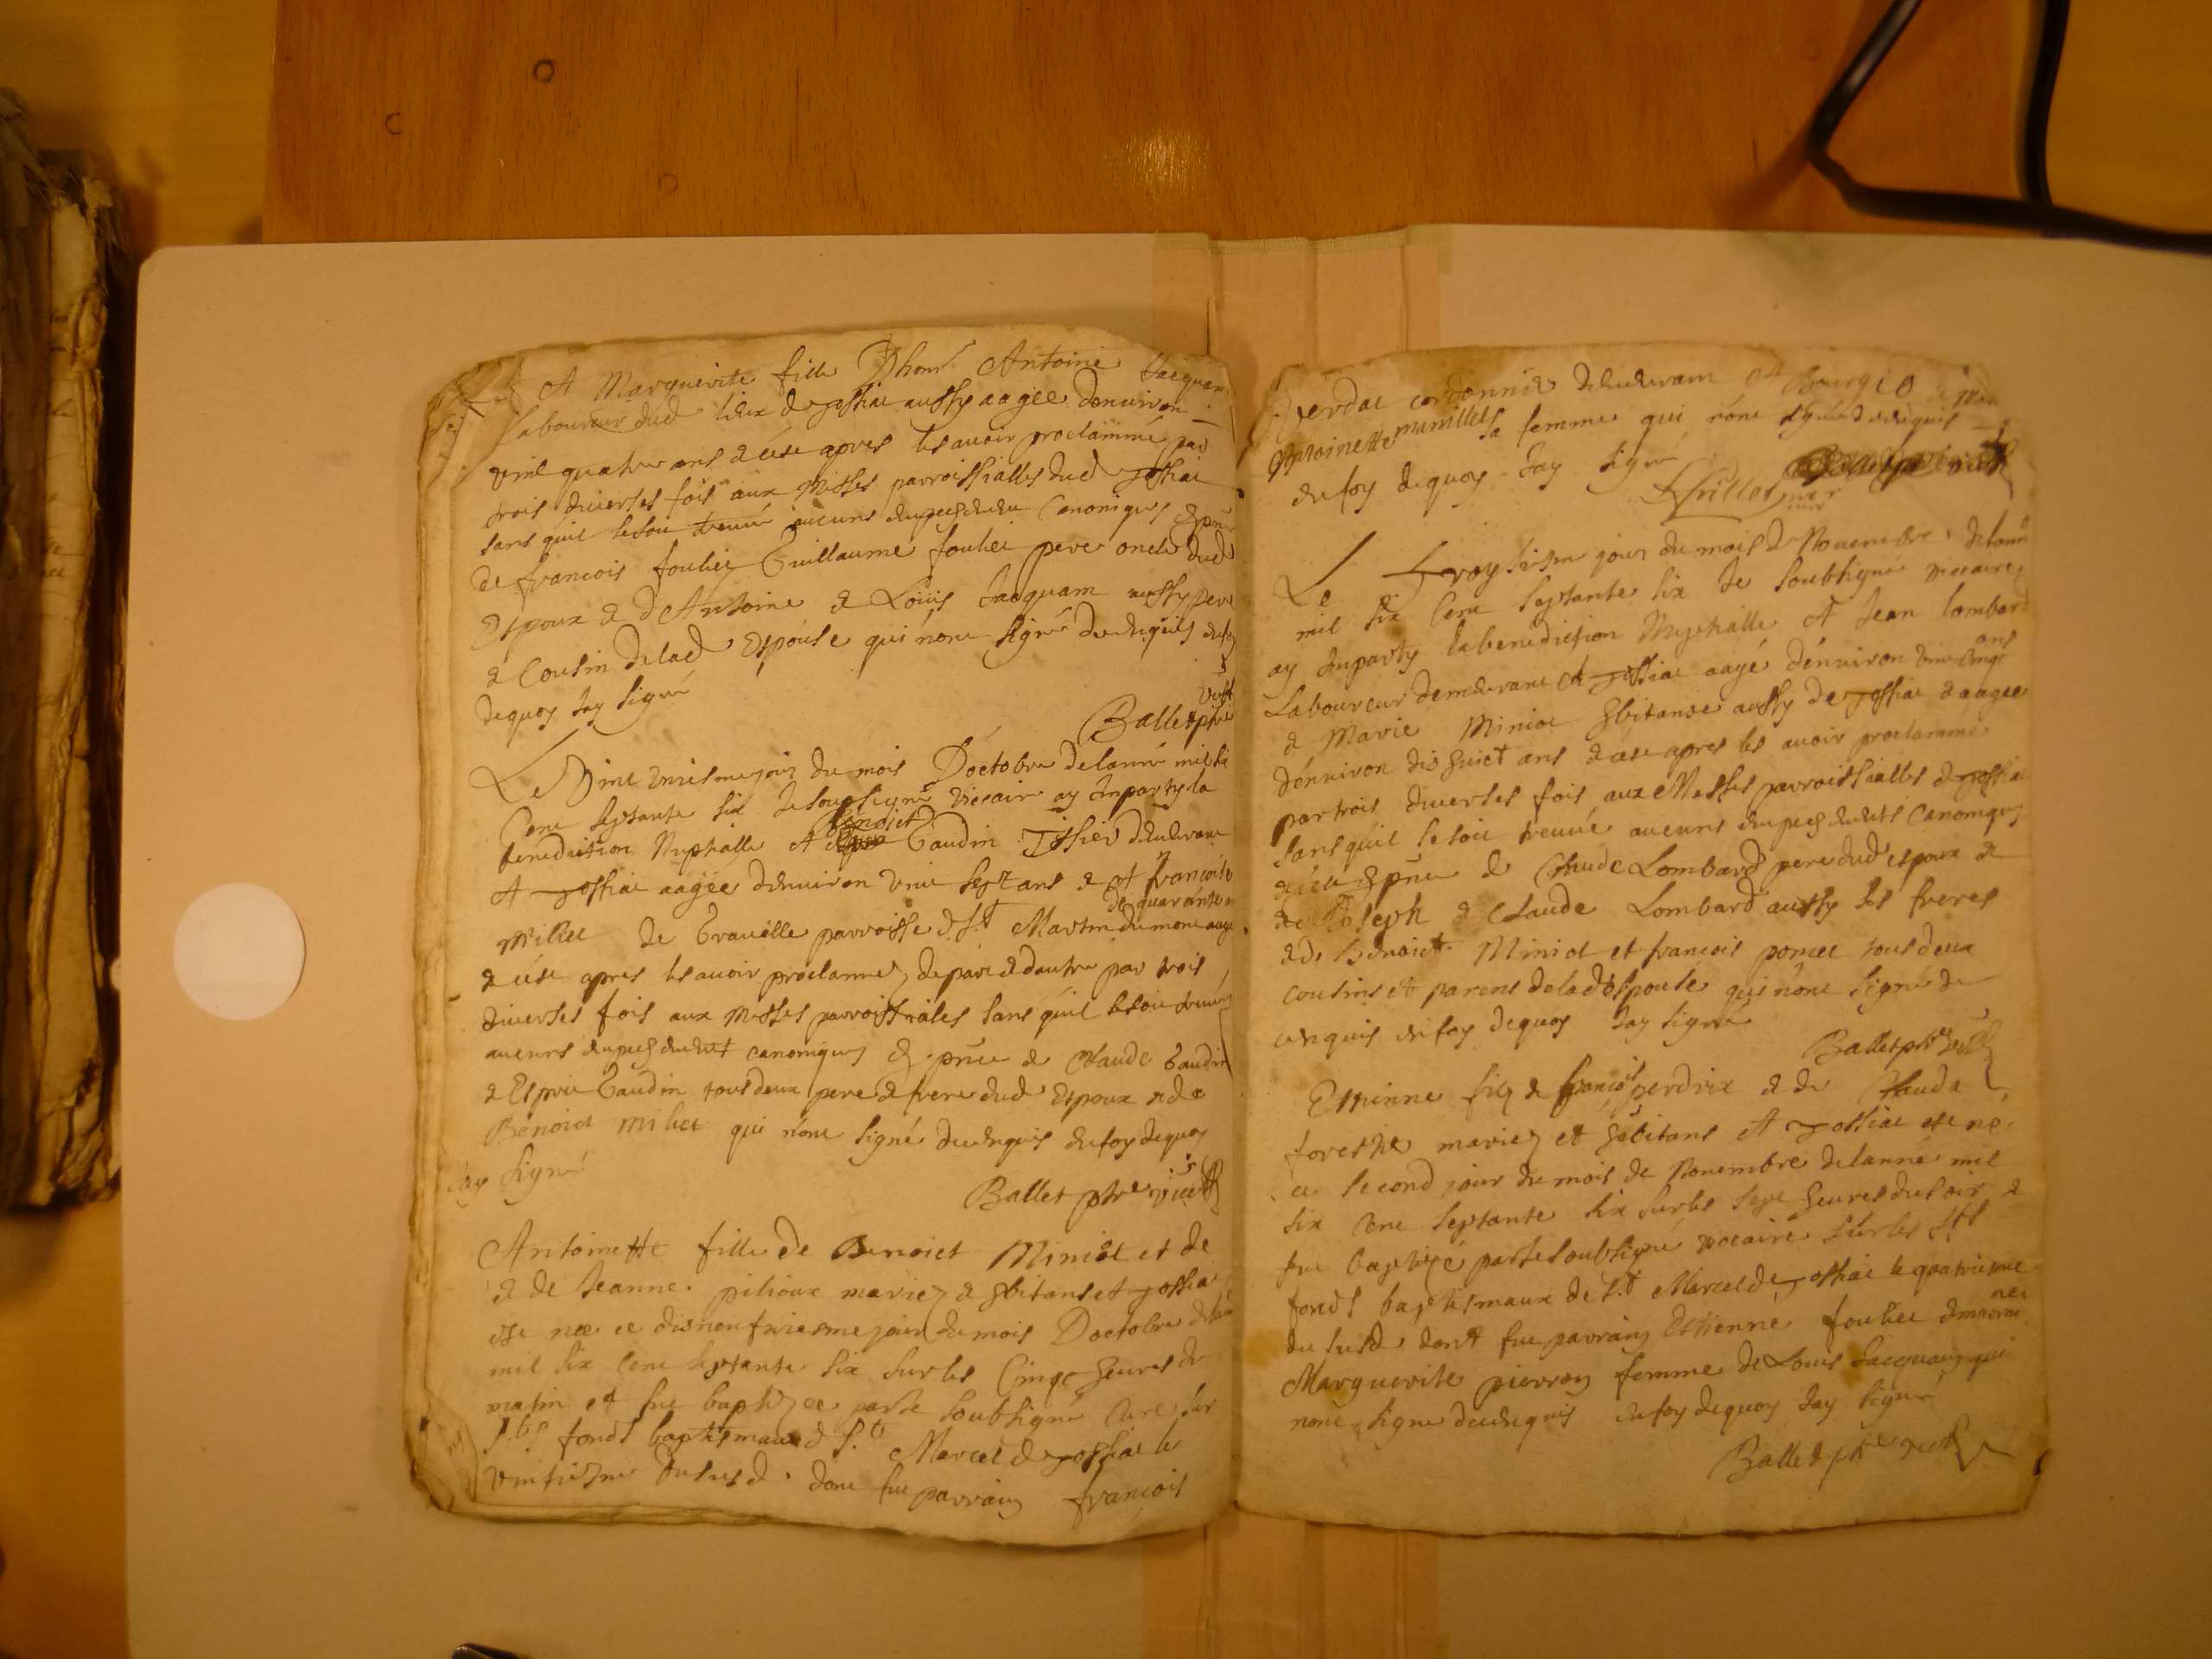 A Marguerite fille D hon. Antoine Jacquam
laboureur dud lieu de Jossiac aussy aagee denuiron
vint quatre ans & cése apres les auoir proclammé par
trois diuerses fois aux Messes parroissialles dud Jossiac
sans quil se soit treuué aucuns Canoniques
de francois foulier Guillaume foulier pere oncle dud
Espoux & d Antoine & Louis Jacquam aussy pere
& Cousin de lad Espouse qui nont signé de enquis
dequoy Jay signé
Ballet ptre
Le Vint vniesme jour du mois Doctobre de lanné mil six
Cent septante six Je soupsigné viccaire ay Inparty la
benediction Nuptialle A benoict Gaudin Tissier demeurant
A Jossiac aagée denuiron vint sept ans & A francoise
de quarante
Millet de Trauelle parroisse de St Martin du mont aagé
& cése apres les auoir proclammez de part & dautre par trois
diuerses fois aux Messes parroissiales sans quil se soit treuué
aucuns canoniques & pnce de Claude Gaudin
& Esprit Gaudin tous deux pere & frere dud Espoux & de
Benoict Millet qui nont signé de enquis en foy dequoy
Jay signé
Ballet ptre vicc
Antoinette fille de Benoict Miniot et de
& de Jeanne pilioux mariez & hbitans et Jossiac
est nee ce disneufuiesme jour du mois Doctobre
mil six Cent septante six sur les Cinqt heures du
matin et fut baptizee par Je soubsigné Cure sur
fonds baptismaux de St Marcel de Jossiac le
vintiesme du susd. dont fut parrain francois
verdat cordonnier demeurant A Bourg
Antoinette sa femme qui nont signé enquis
en foy dequoy Jay signé
Le Troysiesme jour du mois de Nouembre
mil six Cent septante six Je soubsigné viccaire
ay Inparty la benediction Nuptialle A Jean lombard
ans
Laboureur demeurant A Jossiac aagé dénuiron vint Cinqt
& Marie Miniot hbitante aussy de Jossiac & aagee
dénuiron dis huict ans & cése apres les auoir proclammé
par trois diuerses fois aux Messes parroissialles de Jossiac
sans quil se soit treuué aucuns Canoniques
& pnce de Claude Lombard pere dud espoux &
de Joseph & Claude Lombard aussy ses freres
& de Benoict Miniot et francois poncet tous deux
cousins et parens de lad Espouse qui nont signé de
enquis en foy dequoy Jay signé
Ballet ptre
Estienne filz de francois perdrix & de Claude
forestie mariez et habitans A Jossiac est né
ce second jour du mois de Nouembre de lanné mil
six Cent septante six sur les sept heures du soir &
fut baptizé par Je soubsigné viccaire sur les Sts
fonds baptismaux de St Marcel de Jossiac le quatriesme
du susd dont fut parrain Estienne foulier & marraine
Marguerite pierron femme de Louis Jacquam qui
nont signé de enquis en foy dequoy Jay signé
Ballet ptre